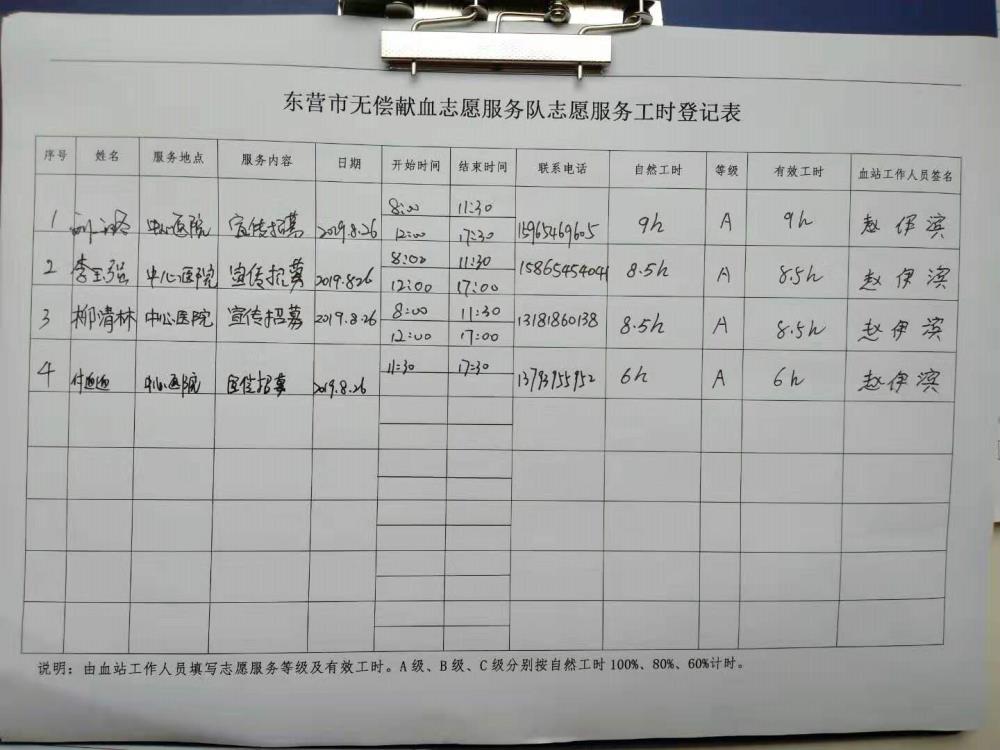 东营市无偿献血志愿服务队志愿服务工时登记表
序号 姓名 服务地点 服务内容 日期 开始时间 结束时间 联系电话 自然工时 等级 有效工时 血站工作人员签名
1 中心医院 宣传招募 2019.8.26 8:00 11:30 15965469605 9h A 9h 赵伊滨
12:00 17:30
2 李玉强 中心医院 宣传招募 2019.8.26 8:00 11:30 15865454041 8.5h A 8.5h 赵伊滨
12:00 17:00
3 柳清林 中心医院 宣传招募 2019.8.26 8:00 11:30 13181860138 8.5h A 8.5h 赵伊滨
12:00 17:00
4 中心医院 宣传招募 2019.8.26 11:30 17:30 13793955952 6h A 6h 赵伊滨
说明：由血站工作人员填写志愿服务等级及有效工时。A级、B级、C级分别按自然工时100%、80%、60%计时。